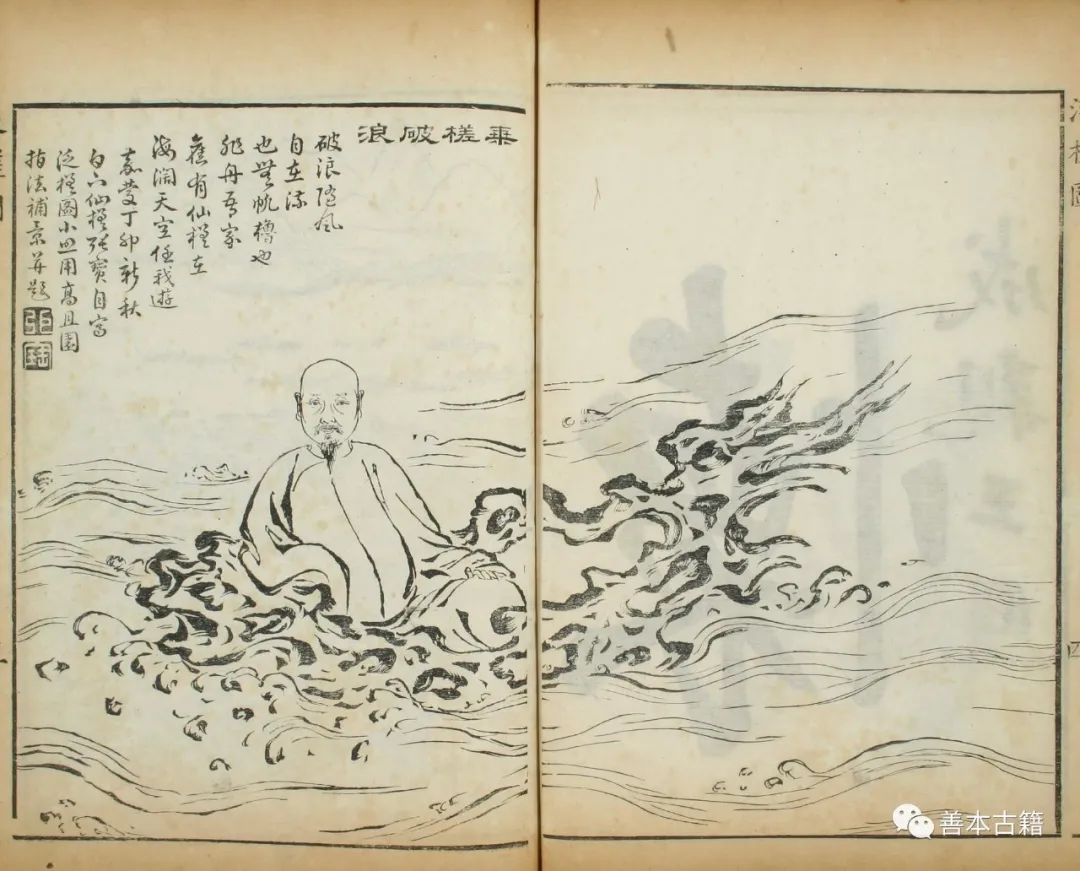 乘槎破浪
破浪隨風
自在流
也無帆櫓也
非舟吾家
舊有仙槎在
海闊天空任我遊
嘉慶丁卯新秋
白下仙槎張寶自寫
泛槎圖小照用高且園
指法補景并題
泛槎圖
四
善本古籍